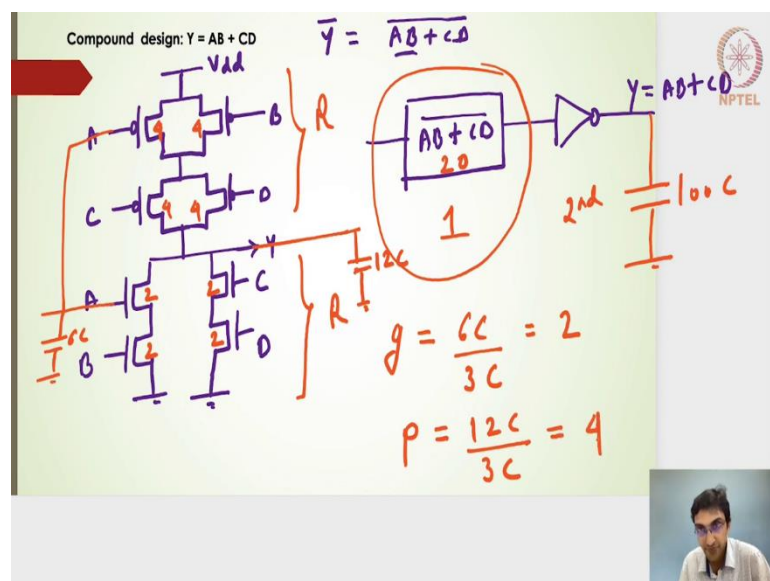 Compound design: Y = AB + CD
Y̅ = \overline{AB + CD}
NPTEL
Vdd
A
4
4
B
R
C
4
4
D
Y
12C
A
2
2
C
R
6C
B
2
2
D
\overline{AB + CD}
20
1
Y = AB + CD
2nd
100C
g = 6C / 3C = 2
P = 12C / 3C = 4